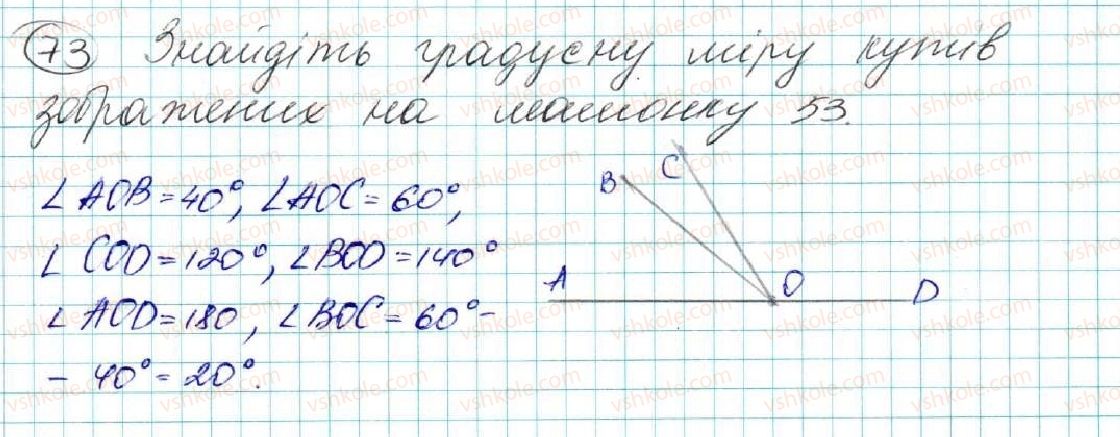 73 Знайдіть градусну міру кутів
зображених на малюнку 53.
∠AOB = 40°, ∠AOC = 60°,
∠COD = 120°, ∠BOD = 140°
∠AOD = 180, ∠BOC = 60° -
- 40° = 20°.
B C
A O D
vshkole.com